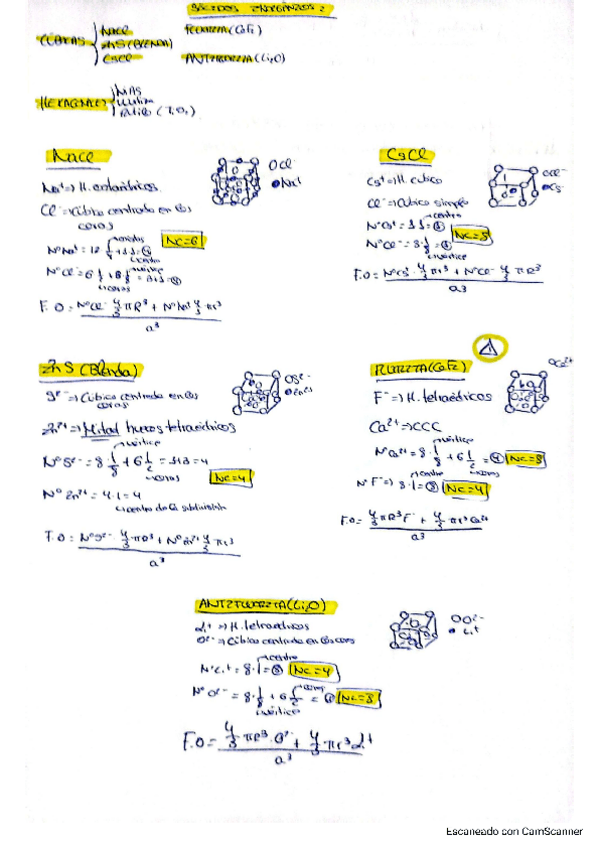 SÓLIDOS INORGÁNICOS:
CÚBICAS { NaCl FLUORITA (CaF2)
ZnS (BLENDA)
CsCl ANTIFLUORITA (Li2O)
HEXAGONALES { NiAs
Wurtzita
Rutilo (TiO2)
NaCl
Na+ => H. octaédricos.
Cl- => Cúbica centrada en las
caras
OCl-
●Na+
NºNa+ = 12 · 1/4 + 1·1 = 4
aristas
centro
Nc=6
NºCl- = 6 · 1/2 + 8 · 1/8 = 3+1 = 4
vértice
caras
F.O = NºCl- 4/3 πR3 + NºNa+ 4/3 πr3
a3
CsCl
Cs+ => H. cúbico
Cl- => Cúbico simple
OCl-
●Cs+
NºCs+ = 1·1 = 1
centro
NºCl- = 8 · 1/8 = 1
vértice
Nc=8
F.O = NºCs+ · 4/3 πr3 + NºCl- 4/3 πR3
a3
ZnS (Blenda)
S2- => Cúbica centrada en las
caras
OS2-
●Zn2+
Zn2+ => Mitad huecos tetraédricos
NºS2- = 8 · 1/8 + 6 · 1/2 = 1+3 = 4
vértice
caras
Nc=4
NºZn2+ = 4·1 = 4
centro de la subdivisión
F.O = NºS2- 4/3 πR3 + NºZn2+ 4/3 πr3
a3
FLUORITA (CaF2)
F- => H. tetraédricos
Ca2+ => CCC
OCa2+
NºCa2+ = 8 · 1/8 + 6 · 1/2 = 4 Nc=8
vértice
caras
centro
NºF- => 8·1 = 8 Nc=4
F.O = 4/3 πR3 F- + 4/3 πr3 Ca2+
a3
ANTIFLUORITA (Li2O)
Li+ => H. tetraédricos
O2- => Cúbica centrada en las caras
OO2-
● Li+
NºLi+ = 8·1 = 8 Nc=4
centro
NºO2- = 8 · 1/8 + 6 · 1/2 = 4 Nc=8
caras
vértice
F.O = 4/3 πR3 · O2- + 4/3 πr3 Li+
a3
Escaneado con CamScanner